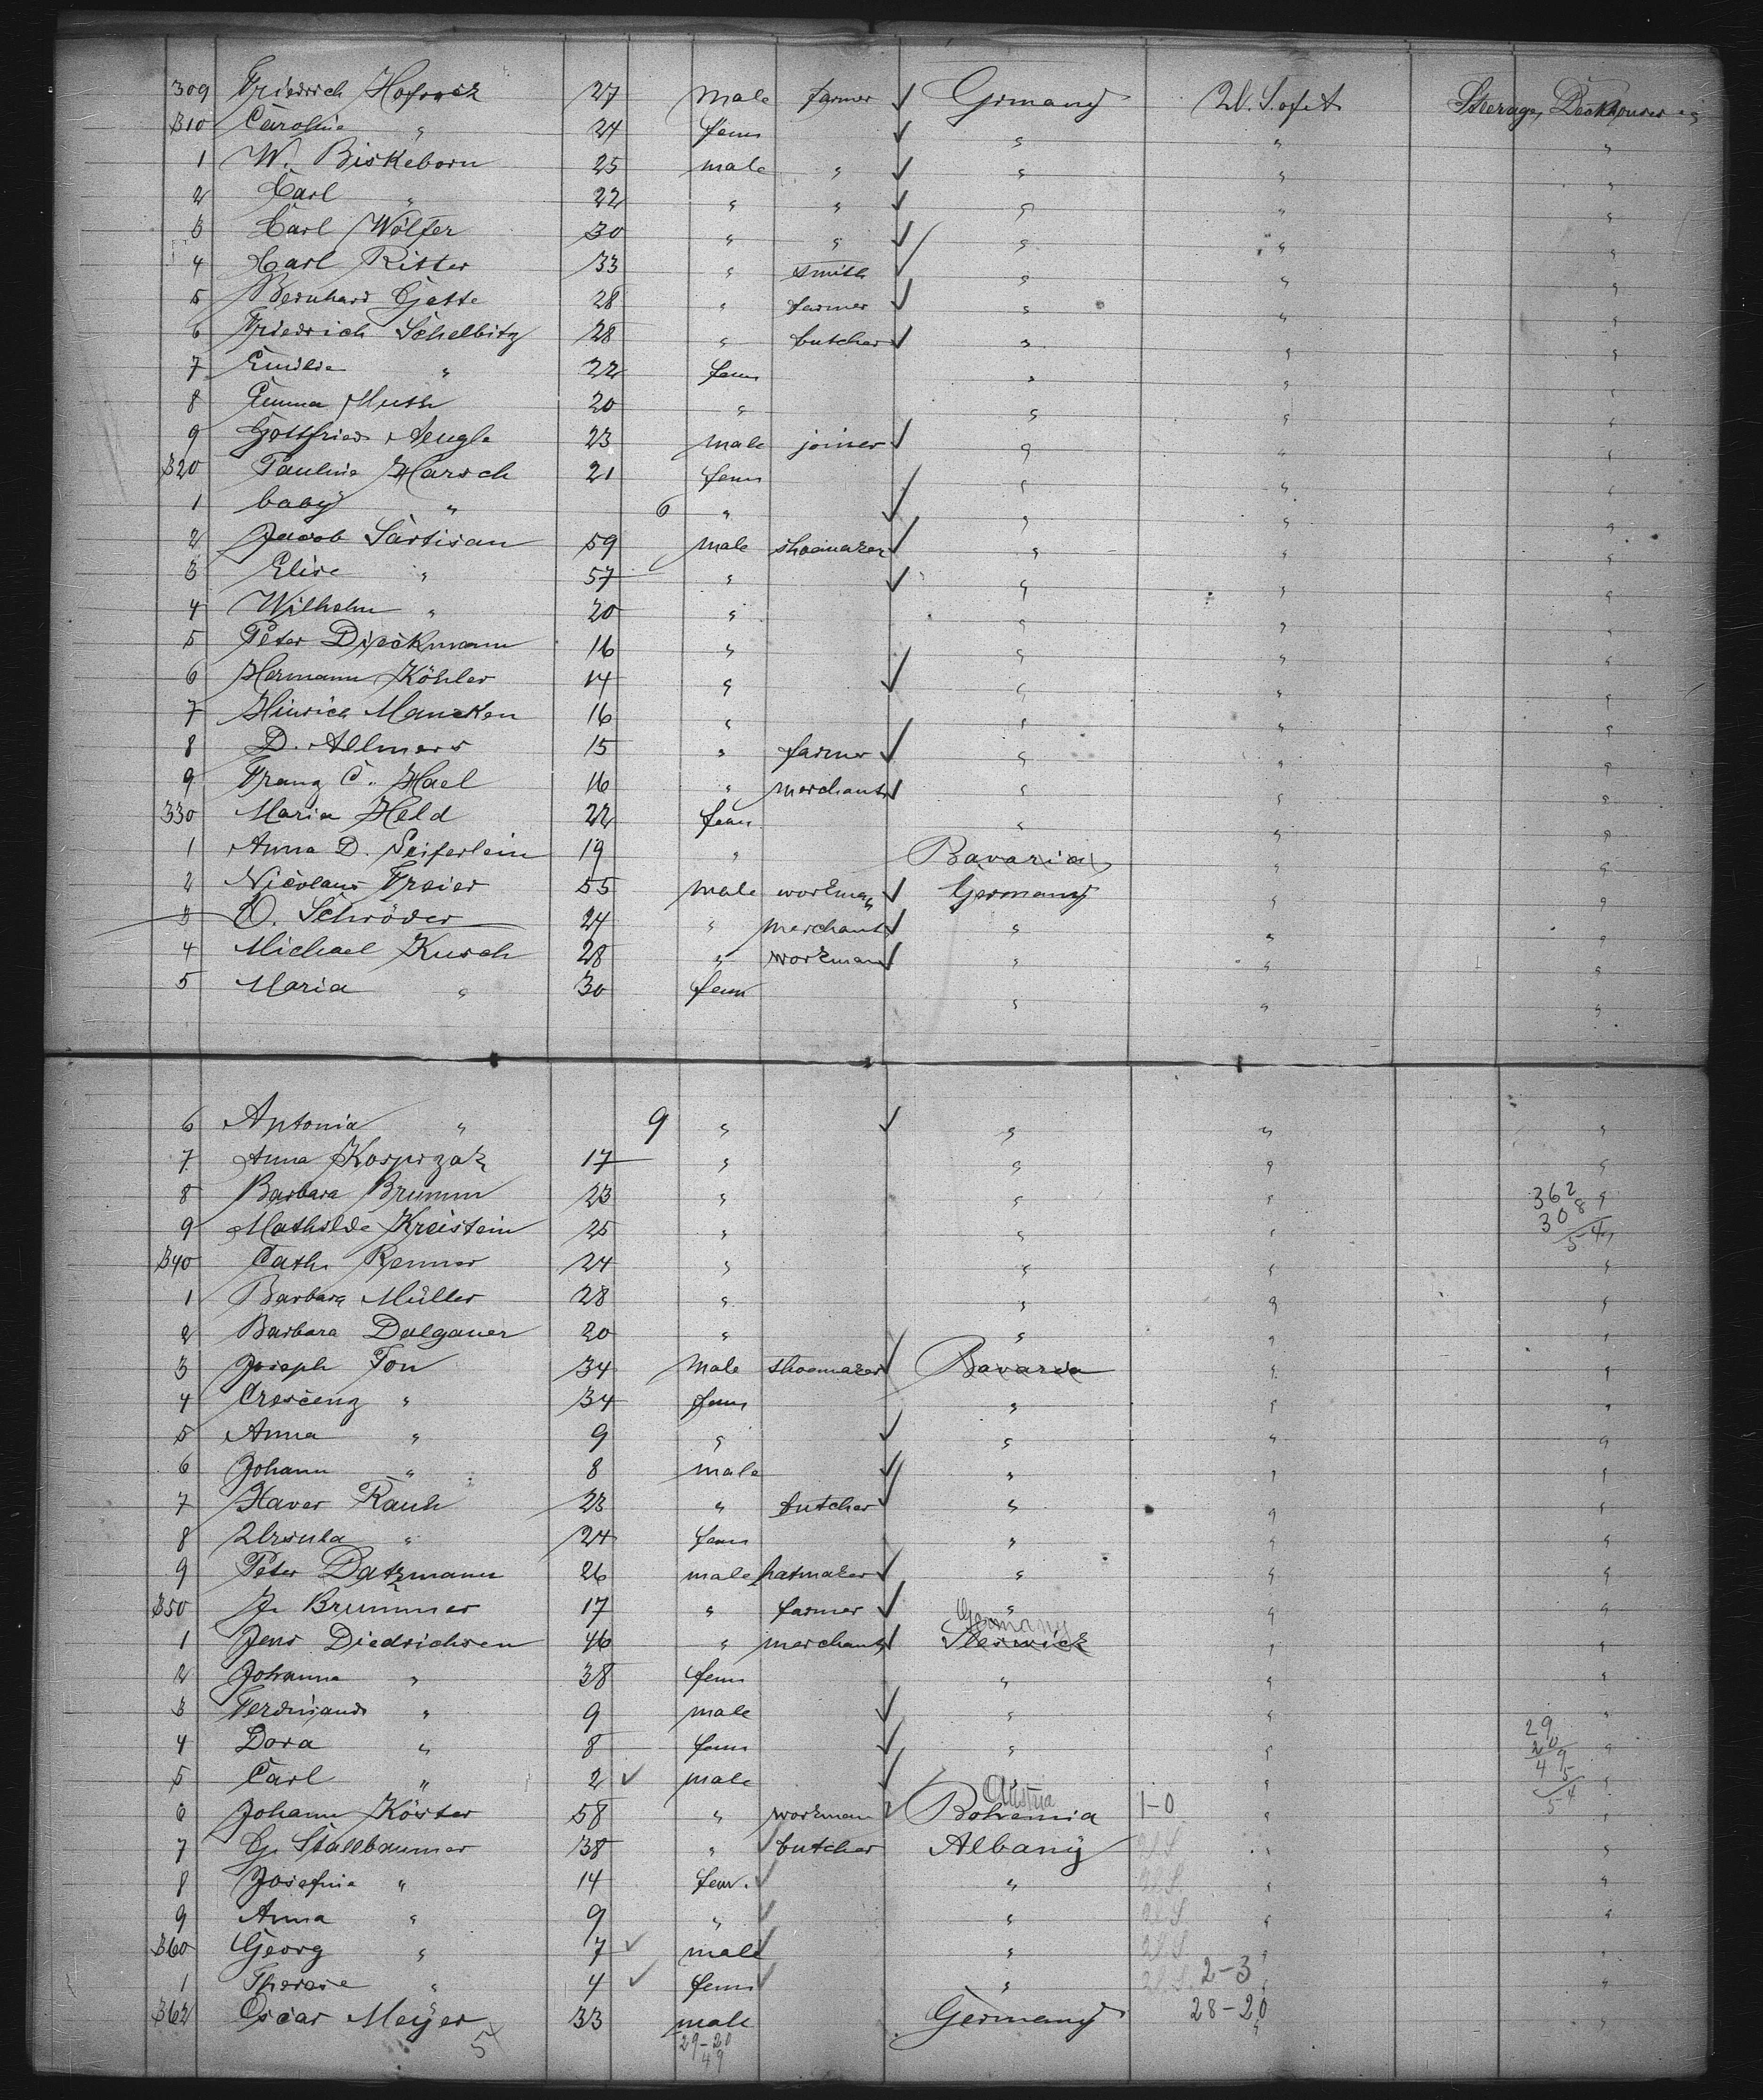 309 Friedrich Hofsack 27 Male farmer ✓ Grmany U. S. of A Steerage, Deckhouses
310 Caroline " 24 fem ✓ " " "
1 W. Biskeborn 25 male " ✓ " " "
2 Carl " 22 " " ✓ " " "
3 Carl Wölfer 30 " " ✓ " " "
4 Carl Ritter 33 " smith ✓ " " "
5 Bernhard 28 " farmer ✓ " " "
6 Friedrich Schelbitz 28 " butcher ✓ " " "
7 Emilie " 22 fem " " "
8 Emma Muth 20 " " " "
9 Gottfried Aengle 23 male joiner ✓ " " "
320 Pauline Harsch 21 fem " " "
1 baby " 6 " ✓ " " "
2 Jacob Sartisan 59 male shoemaker ✓ " " "
3 Elise " 57 " ✓ " " "
4 Wilhelm " 20 " " " "
5 Peter Dieckmann 16 " " " "
6 Hermann Köhler 14 " ✓ " " "
7 Hinrich Mancken 16 " " " "
8 D. Allmers 15 " farmer ✓ " " "
9 Franz C. Hael 16 " merchant ✓ " " "
330 Maria Held 22 fem " " "
1 Anna D. Seiferlein 19 " Bavaria " "
2 Nicolaus Freier 55 male workman ✓ Germany " "
3 O. Schröder 24 " merchant ✓ " " "
4 Michael Kusch 28 " workman ✓ " " "
5 Maria " 30 fem " " "
6 Antonia " 9 " ✓ " " "
7 Anna Kosprzak 17 " " " "
8 Barbara Brumm 23 " " " " 362
9 Mathilde Kreistein 25 " " " 308
54
340 Cath. Renner 24 " " " "
1 Barbara Müller 28 " " " "
2 Barbara Dalgauer 20 " " " "
3 Joseph Fon 34 Male shoemaker ✓ Bavaria " "
4 Crescenz " 34 fem " " "
5 Anna " 9 " ✓ " " "
6 Johann " 8 male ✓ " " "
7 Xaver Rauh 23 " butcher ✓ " " "
8 Ursula " 24 fem " " "
9 Peter Datzmann 26 male hatmaker ✓ " " "
350 J. Brummer 17 " farmer ✓ " " "
Germany
1 Jens Diedrichsen 46 " merchant ✓ Sleswick " "
2 Johanna " 38 fem " " "
3 Ferdinand " 9 male ✓ " " "
29
4 Dora " 8 fem ✓ " " 20 "
49
5 Carl " 2 ✓ male ✓ " " 5 "
54
Austria
6 Johann Köster 58 " workman ✓ Bohemia 1-0 " "
7 G. Stallbaumer 38 " ✓ butcher Albany U S " "
8 Josefine " 14 fem. ✓ " U. S. " "
9 Anna " 9 " ✓ " U S. " "
360 Georg " 7 ✓ male ✓ " U S. " "
1 Therese " 4 ✓ fem ✓ " U. S. 2-3 " "
362 Oscar Meyer 33 male Germany 28-20 " "
54 29-20
49